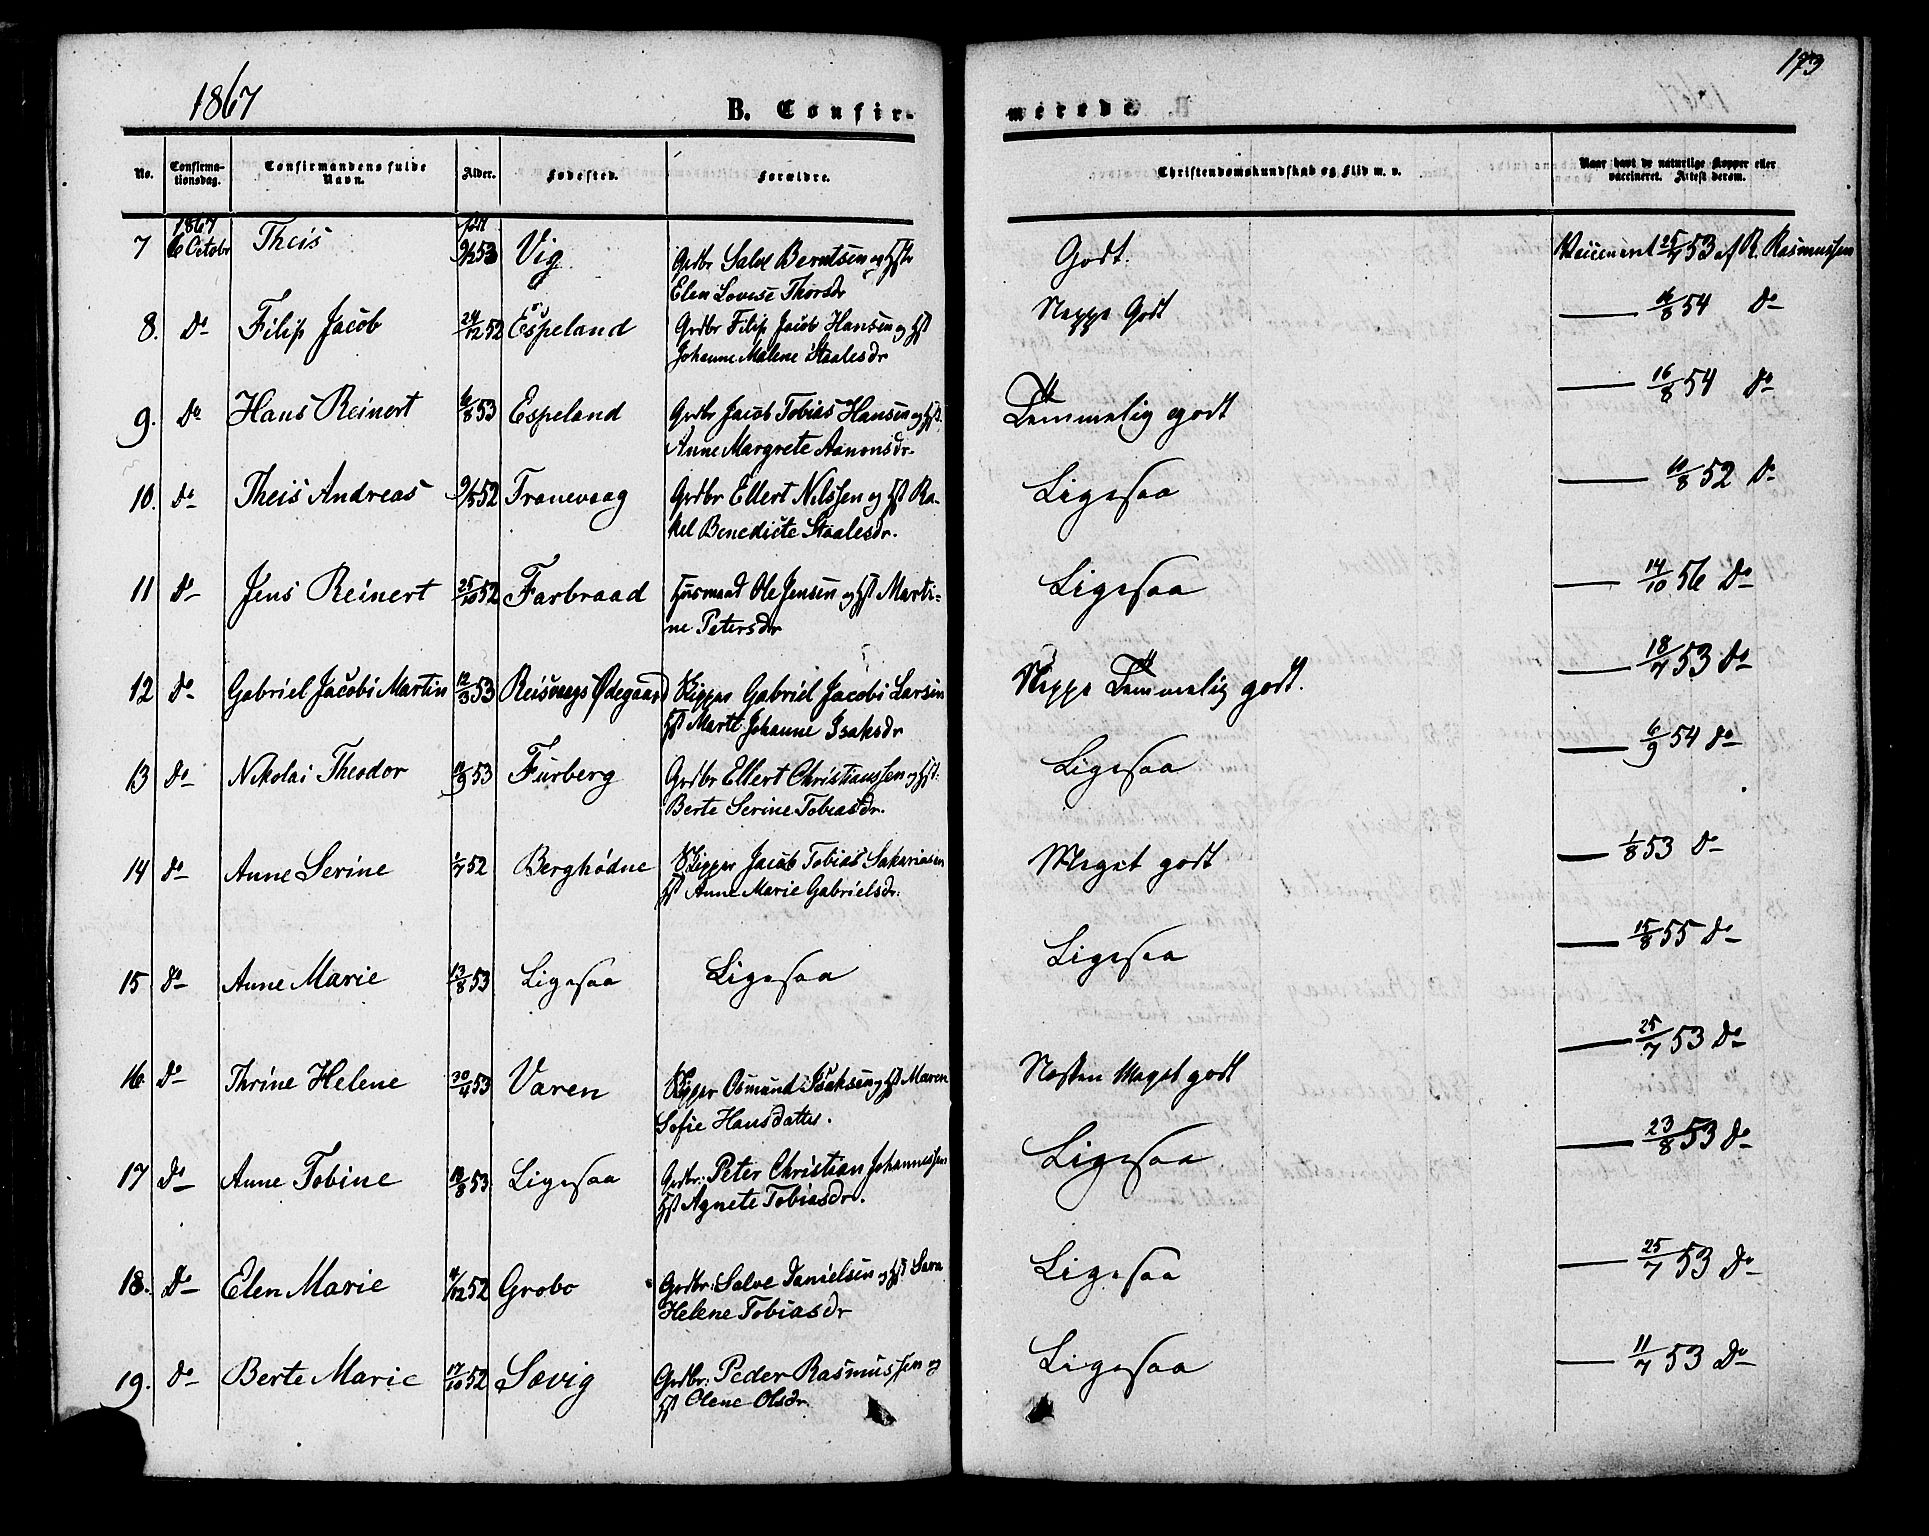 173
1867
B. Confirmerede.
No. Confirmationsdag. Confirmandens fulde Navn. Alder. Fødested. Forældre. Christendomskundskab og Flid m. v. Naar havt de naturlige Kopper eller vaccineret. Attest derom.
7 1867 6 Octobr Theis født 9/12 53 Vig Grdbr Salve Berntsen og Hstr Godt. Vaccineret 25/7 53 af R. Rasmussen
Elen Lovise Thorsdr
8. Do Filip Jacob 24/12 52 Espeland Grdbr Filip Jacob Hansen og Hst Neppe Godt — 16/8 54 Do
Johanne Malene Staalesdr
9. Do Hans Reinert 6/8 53 Espeland Grdbr Jacob Tobias Hansen og Hst. Temmelig godt — 16/8 54 Do
Anne Margrete Aanonsdr.
10. Do Theis Andreas 9/5 52 Tranevaag Grdbr Ellert Nilssen og Hst Ra- Ligesaa — 10/8 52 Do
kel Benedicte Staalesdr.
11 Do Jens Reinert 25/10 52 Farbraad Husmand Ole Jensen og Hst Marti- Ligesaa — 14/10 56 Do
ne Petersdr
12 Do Gabriel Jacobi Martin 12/3 53 Reisvaags Ødegaard Skipper Gabriel Jacobi Larsen Neppe Temmelig godt. — 18/7 53 Do
Hst Marte Johanne Isaksdr
13 Do Nikolai Theodor 53 Furberg Grdbr Ellert Christianssen og Hst: Ligesaa — 6/9 54 Do
Berte Serine Tobiasdr.
14 Do Anne Serine 1/7 52 Berghødne Skipper Jacob Tobias Sakariasen Meget godt — 1/8 53 Do
Hst Anne Marie Gabrielsdr.
15 Do Anne Marie 13/8 53 Ligesaa Ligesaa Ligesaa — 15/8 55 Do
16 Do Thrine Helene 30/4 53 Varen Skipper Osmund Isaksen og Hst Maren Næsten Meget godt — 25/7 53 Do
Sofie Hansdatter.
17 Do Anne Tobine 53 Ligesaa Grdbr: Peter Christian Johannessen Ligesaa — 23/8 53 Do
Hst Agnete Tobiasdr.
18. Do Elen Marie 52 Grobo Grdbr: Salve Danielsen og Hst Sara Ligesaa — 25/7 53 Do
Helene Tobiasdr
19. Do Berte Marie 17/10 52 Sævig Grdbr: Peder Rasmussen og Ligesaa — 11/7 53 Do
Hst Olene Olsdr.